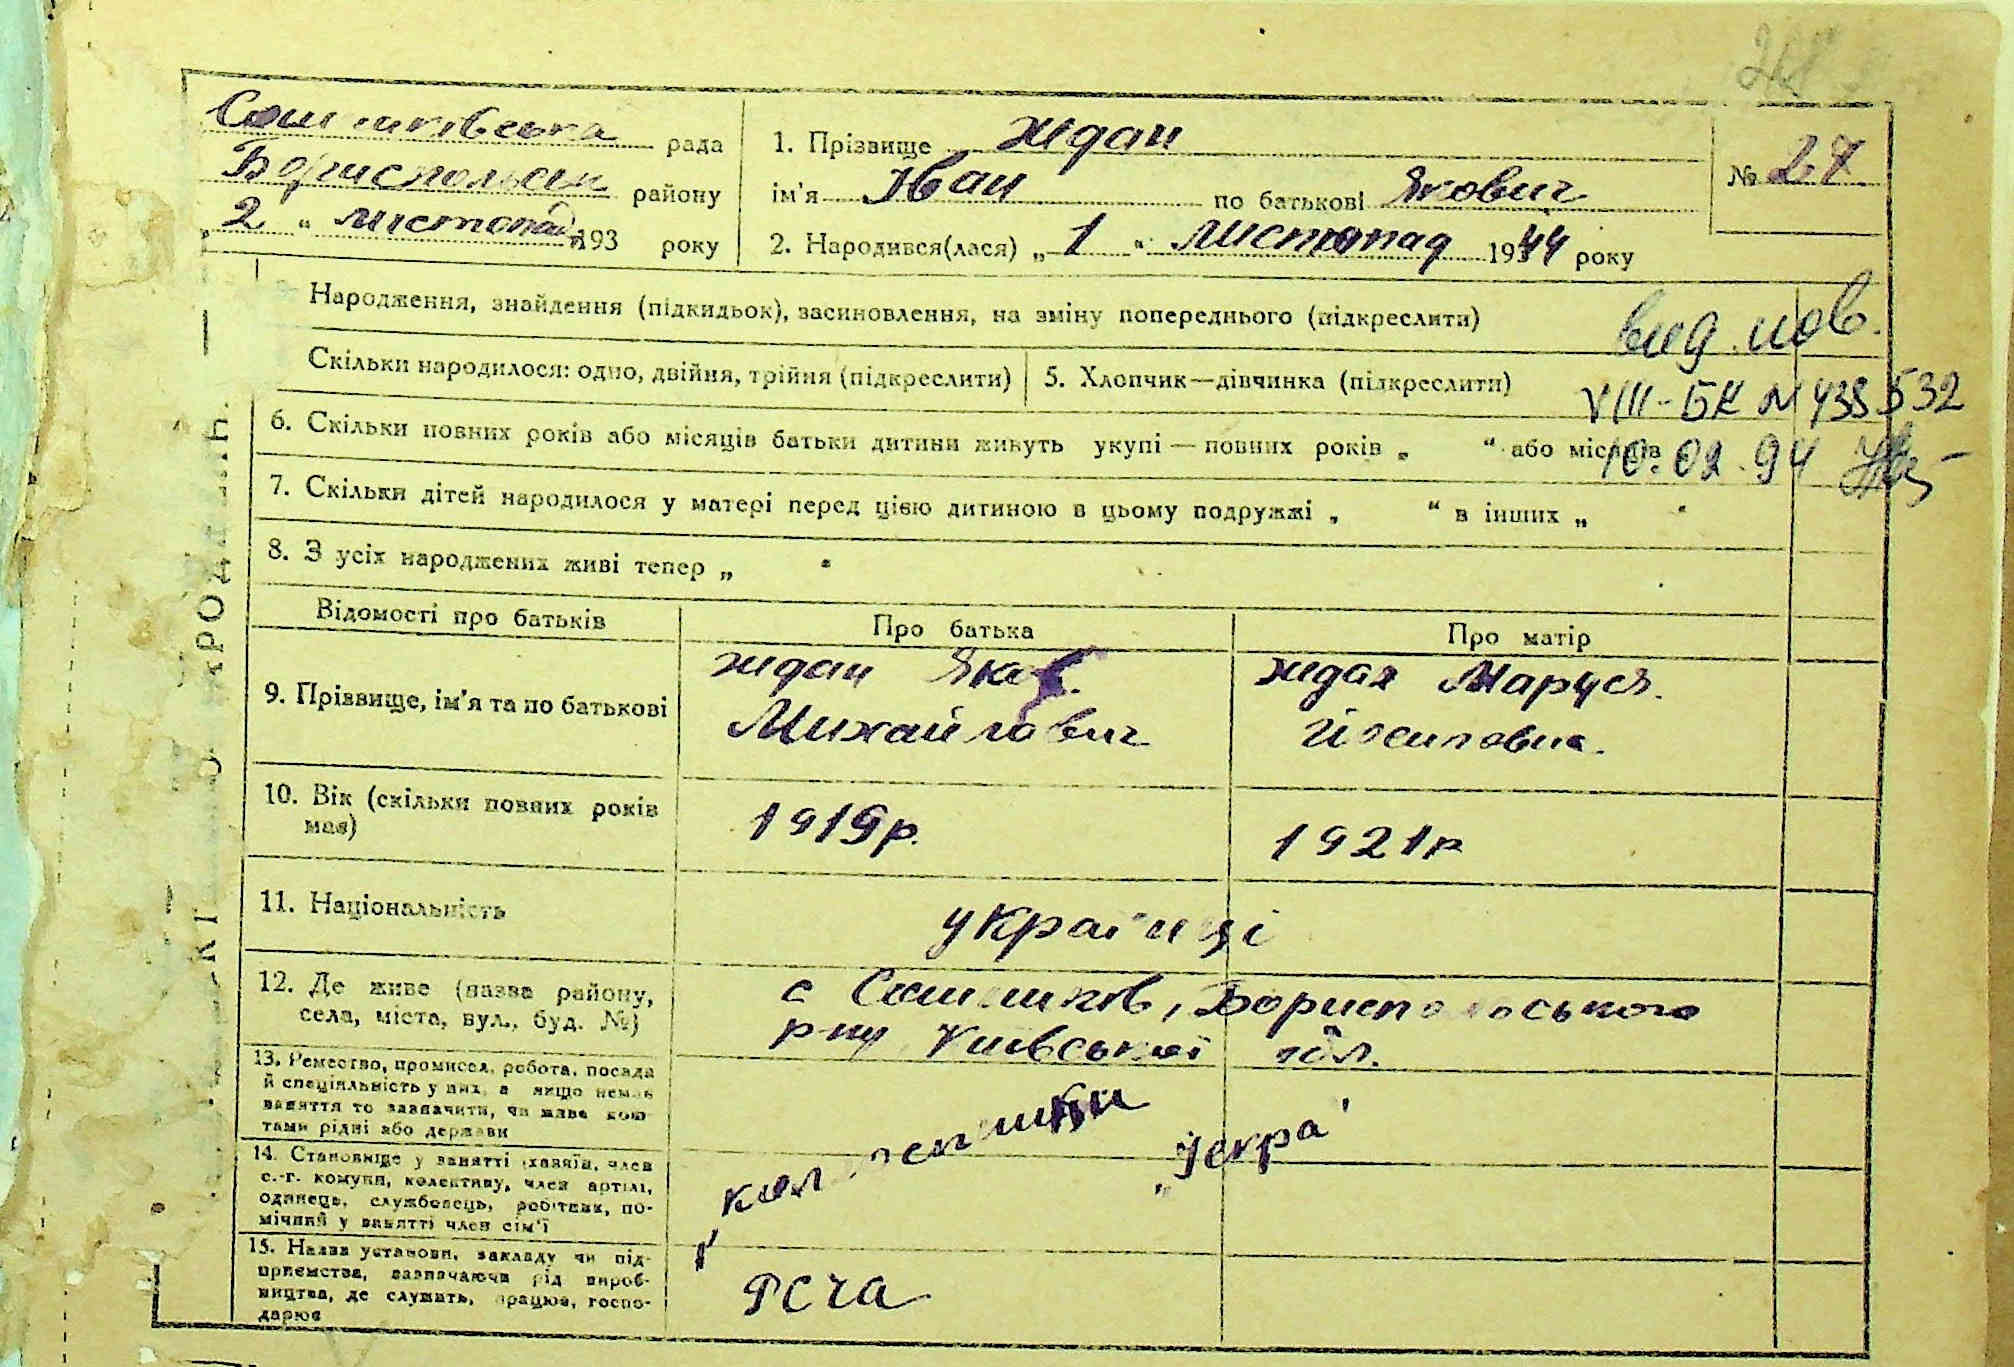 268
Сошниківська рада
Бориспольськ району
„ 2 “ листопад 193 року
1. Прізвище Ждан
ім'я Іван по батькові Якович
2. Народився(лася) „ 1 “ листопад 1944 року
№ 27
Народження, знайдення (підкидьок), засиновлення, на зміну попереднього (підкреслити)
вид. пов.
Скільки народилося: одно, двійня, трійня (підкреслити) 5. Хлопчик—дівчинка (підкреслити)
VIII-БК № 438532
6. Скільки повних років або місяців батьки дитини живуть укупі — повних років „ “ або місяців
10.02.94
7. Скільки дітей народилося у матері перед цією дитиною в цьому подружжі „ “ в інших „ “
8. З усіх народжених живі тепер „ “
Відомості про батьків Про батька Про матір
9. Прізвище, ім'я та по батькові
Ждан Яков.
Михайлович
Ждан Маруся.
Йосиповна.
10. Вік (скільки повних років
має)
1919р.
1921р
11. Національність
українці
12. Де живе (назва району,
села, міста, вул., буд. №)
с Сошников, Бориспольського
р-ну Київської обл.
13. Ремество, промисел, робота, посада
й спеціяльність у них, а якщо немає
заняття то зазначити, чи живе кош-
тами рідні або держави
14. Становище у занятті (хазяїн, член
с.-г. комуни, колективу, член артілі,
одинець, службовець, робітник, по-
мічний у занятті член сім'ї
колгоспники
„Іскра“
15. Назва установи, закладу чи під-
приємства, зазначаючи рід вироб-
ництва, де служить, працює, госпо-
дарює
РСЧА